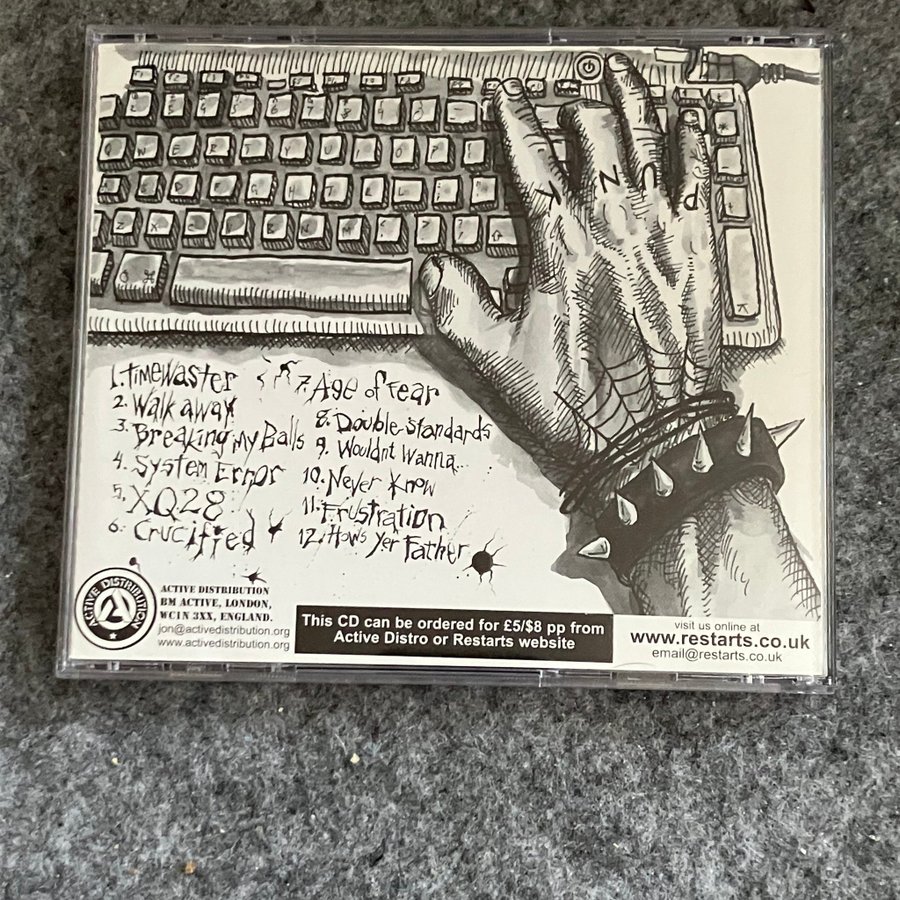 P U N K
1. Timewaster
2. Walk away
3. Breaking My Balls
4. System Error
5. XQ28
6. Crucified
7. Age of fear
8. Double-standards
9. Wouldnt Wanna...
10. Never Know
11. Frustration
12. How's Yer Father
ACTIVE DISTRIBUTION
ACTIVE DISTRIBUTION
BM ACTIVE, LONDON,
WC1N 3XX, ENGLAND.
jon@activedistribution.org
www.activedistribution.org
This CD can be ordered for £5/$8 pp from
Active Distro or Restarts website
visit us online at
www.restarts.co.uk
email@restarts.co.uk